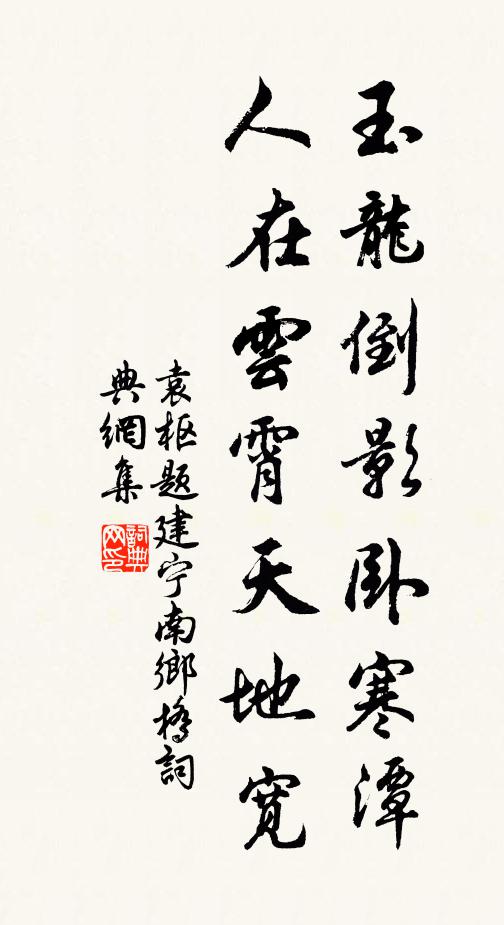 玉龍倒影卧寒潭
人在雲霄天地寬
袁枢题建宁南鄉橋詞
典網集
詞典
网印